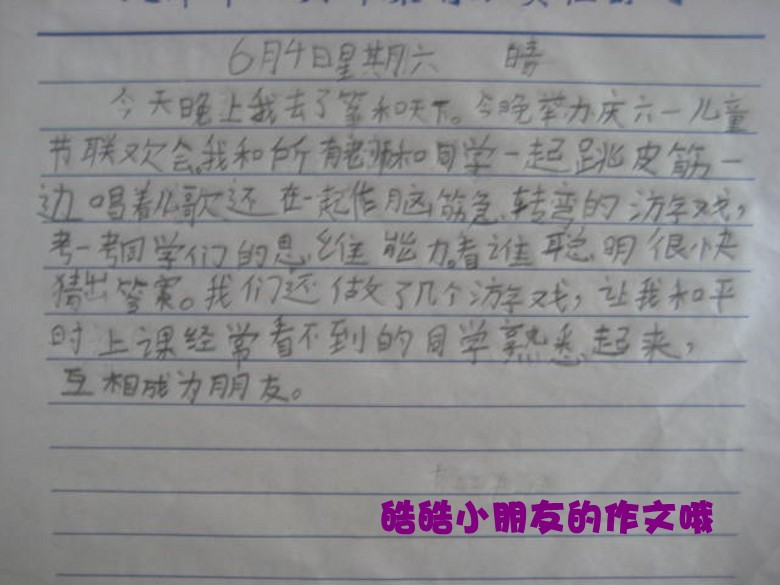 6月4日星期六 晴
今天晚上我去了笨和天下。今晚举办庆六一儿童
节联欢会。我和所有老师和同学一起跳皮筋一
边唱着儿歌还在一起作脑筋急转弯的游戏,
考一考同学们的思维能力。看谁聪明很快
猜出答案。我们还做了几个游戏,让我和平
时上课经常看不到的同学熟悉起来,
互相成为朋友。
皓皓小朋友的作文哦